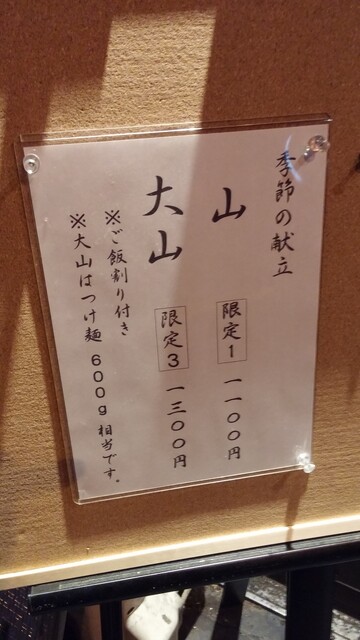 季節の献立
山 限定1 一一〇〇円
大山 限定3 一三〇〇円
※ご飯割り付き
※大山はつけ麺600g相当です。